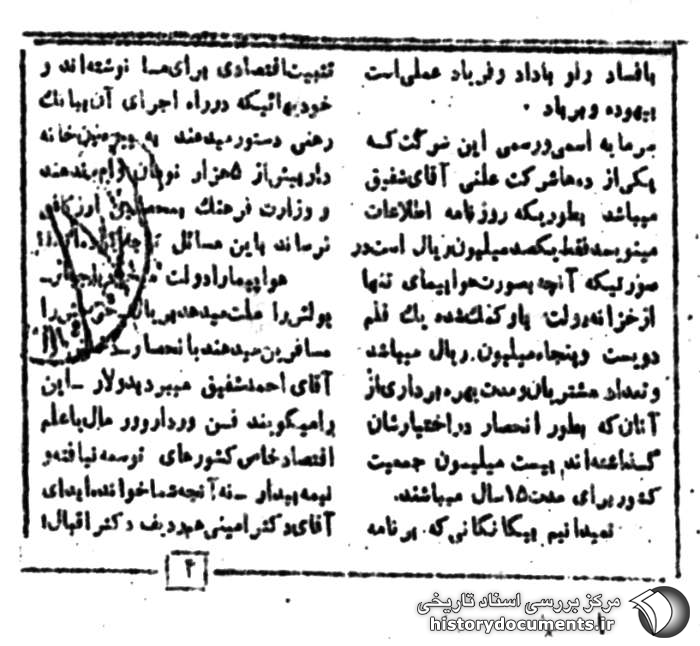 بافساد ولو باداد وفریاد عملی است
بیهوده و برباد .
سرمایه اسمی ورسمی این شرکت که
یکی از دهها شرکت علنی آقای شفیق
میباشد بطوریکه روزنامه اطلاعات
مینویسد فقط یکصد میلیون ریال است در
صورتیکه آنچه بصورت هواپیمای تنها
از خزانه دولت پاو کمک شده یک قلم
دویست وپنجاه میلیون ریال میباشد
وتعداد مشتریان ومدت بهره برداری از
آنان که بطور انحصار در اختیارشان
گذاشته اند بیست میلیون جمعیت
کشور برای مدت ۱۵ سال میباشند.
نمیدانیم بیگانگانی که برنامه
تثبیت اقتصادی برای ما نوشته اند و
خودبهائیکه در راه اجرای آن ببانک
رهنی دستور میدهند به هیچ خانه
داری بیش از ۵ هزار تومان وام ندهند
و وزارت فرهنگ بمحصلین ارز کافی
نرساند باین مسائل
هواپیما را دولت
پولش را ملت میدهد
مسافرین میدهند با انحصار
آقای احمد شفیق میبرد بدلار - این
را میگویند فن وردار و ور مال با علم
اقتصاد خاص کشورهای توسعه نیافته و
نیمه بیدار - نه آنچه شما خوانده اید ای
آقای دکتر امینی هم ردیف دکتر اقبال!
۴
مرکز بررسی اسناد تاریخی
historydocuments.ir